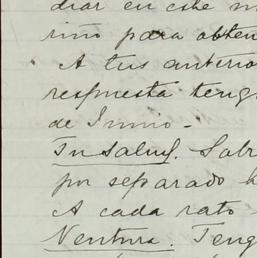 diar en este m
riño para obten
A tus anterio
respuesta teng
de Junio -
Tu salud. Sobr
por separado h
A cada rato
Ventura. Teng